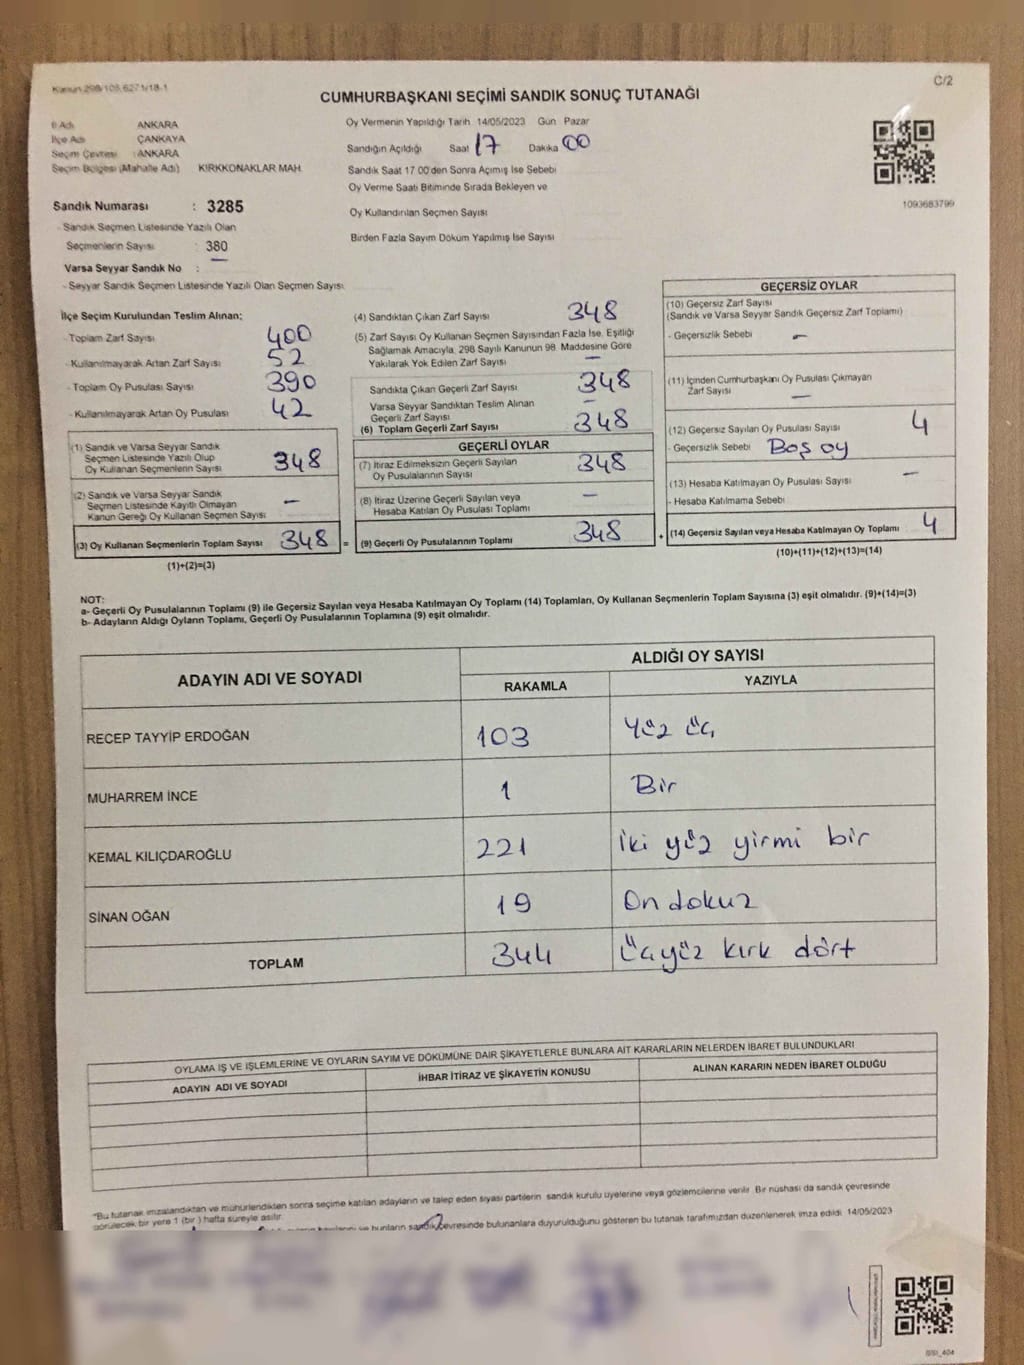 Kanun 298/105,6271/18-1
C/2
CUMHURBAŞKANI SEÇİMİ SANDIK SONUÇ TUTANAĞI
İl Adı ANKARA
İlçe Adı ÇANKAYA
Seçim Çevresi : ANKARA
Seçim Bölgesi (Mahalle Adı) KIRKKONAKLAR MAH.
Oy Vermenin Yapıldığı Tarih 14/05/2023 Gün Pazar
Sandığın Açıldığı Saat 17 Dakika 00
Sandık Saat 17 00'den Sonra Açımış İse Sebebi
Oy Verme Saati Bitiminde Sırada Bekleyen ve
Oy Kullandırılan Seçmen Sayısı
Birden Fazla Sayım Döküm Yapılmış İse Sayısı
1093683799
Sandık Numarası : 3285
- Sandık Seçmen Listesinde Yazılı Olan
Seçmenlerin Sayısı : 380
Varsa Seyyar Sandık No : —
- Seyyar Sandık Seçmen Listesinde Yazılı Olan Seçmen Sayısı
İlçe Seçim Kurulundan Teslim Alınan:
- Toplam Zarf Sayısı 400
- Kullanılmayarak Artan Zarf Sayısı 52
- Toplam Oy Pusulası Sayısı 390
- Kullanılmayarak Artan Oy Pusulası 42
(1) Sandık ve Varsa Seyyar Sandık
Seçmen Listesinde Yazılı Olup
Oy Kullanan Seçmenlerin Sayısı 348
(2) Sandık ve Varsa Seyyar Sandık
Seçmen Listesinde Kayıtlı Olmayan
Kanun Gereği Oy Kullanan Seçmen Sayısı —
(3) Oy Kullanan Seçmenlerin Toplam Sayısı 348 =
(1)+(2)=(3)
(4) Sandıktan Çıkan Zarf Sayısı 348
(5) Zarf Sayısı Oy Kullanan Seçmen Sayısından Fazla İse, Eşitliği
Sağlamak Amacıyla, 298 Sayılı Kanunun 98. Maddesine Göre
Yakılarak Yok Edilen Zarf Sayısı —
Sandıkta Çıkan Geçerli Zarf Sayısı 348
Varsa Seyyar Sandıktan Teslim Alınan
Geçerli Zarf Sayısı —
(6) Toplam Geçerli Zarf Sayısı 348
GEÇERLİ OYLAR
(7) İtiraz Edilmeksizin Geçerli Sayılan
Oy Pusulalarının Sayısı 348
(8) İtiraz Üzerine Geçerli Sayılan veya
Hesaba Katılan Oy Pusulası Toplamı —
(9) Geçerli Oy Pusulalarının Toplamı 348 +
GEÇERSİZ OYLAR
(10) Geçersiz Zarf Sayısı
(Sandık ve Varsa Seyyar Sandık Geçersiz Zarf Toplamı)
- Geçersizlik Sebebi —
(11) İçinden Cumhurbaşkanı Oy Pusulası Çıkmayan
Zarf Sayısı —
(12) Geçersiz Sayılan Oy Pusulası Sayısı 4
- Geçersizlik Sebebi Boş oy
(13) Hesaba Katılmayan Oy Pusulası Sayısı —
- Hesaba Katılmama Sebebi
(14) Geçersiz Sayılan veya Hesaba Katılmayan Oy Toplamı 4
(10)+(11)+(12)+(13)=(14)
NOT:
a- Geçerli Oy Pusulalarının Toplamı (9) ile Geçersiz Sayılan veya Hesaba Katılmayan Oy Toplamı (14) Toplamları, Oy Kullanan Seçmenlerin Toplam Sayısına (3) eşit olmalıdır. (9)+(14)=(3)
b- Adayların Aldığı Oyların Toplamı, Geçerli Oy Pusulalarının Toplamına (9) eşit olmalıdır.
ADAYIN ADI VE SOYADI ALDIĞI OY SAYISI
RAKAMLA YAZIYLA
RECEP TAYYİP ERDOĞAN 103 Yüz üç
MUHARREM İNCE 1 Bir
KEMAL KILIÇDAROĞLU 221 iki yüz yirmi bir
SİNAN OĞAN 19 On dokuz
TOPLAM 344 Üçyüz kırk dört
OYLAMA İŞ VE İŞLEMLERİNE VE OYLARIN SAYIM VE DÖKÜMÜNE DAİR ŞİKAYETLERLE BUNLARA AİT KARARLARIN NELERDEN İBARET BULUNDUKLARI
ADAYIN ADI VE SOYADI İHBAR İTİRAZ VE ŞİKAYETİN KONUSU ALINAN KARARIN NEDEN İBARET OLDUĞU
*Bu tutanak imzalandıktan ve mühürlendikten sonra seçime katılan adayların ve talep eden siyasi partilerin sandık kurulu üyelerine veya gözlemcilerine verilir. Bir nüshası da sandık çevresinde
görülecek bir yere 1 (bir) hafta süreyle asılır.
ve bunların sandık çevresinde bulunanlara duyurulduğunu gösteren bu tutanak tarafımızdan düzenlenerek imza edildi. 14/05/2023